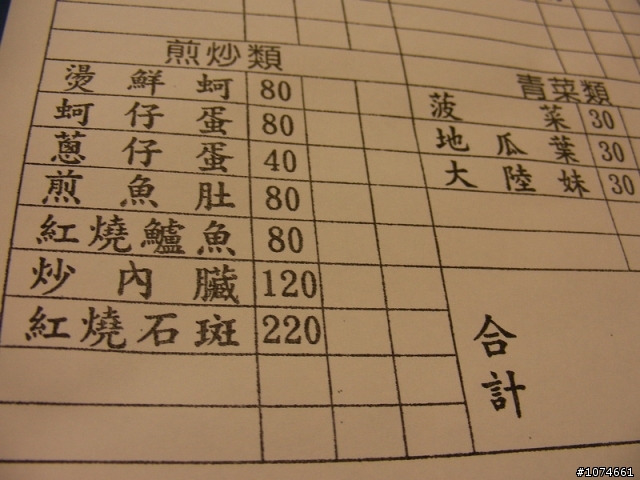 煎炒類
燙鮮蚵 80
蚵仔蛋 80
蔥仔蛋 40
煎魚肚 80
紅燒鱸魚 80
炒內臟 120
紅燒石斑 220
青菜類
菠菜 30
地瓜葉 30
大陸妹 30
合計
#1074661